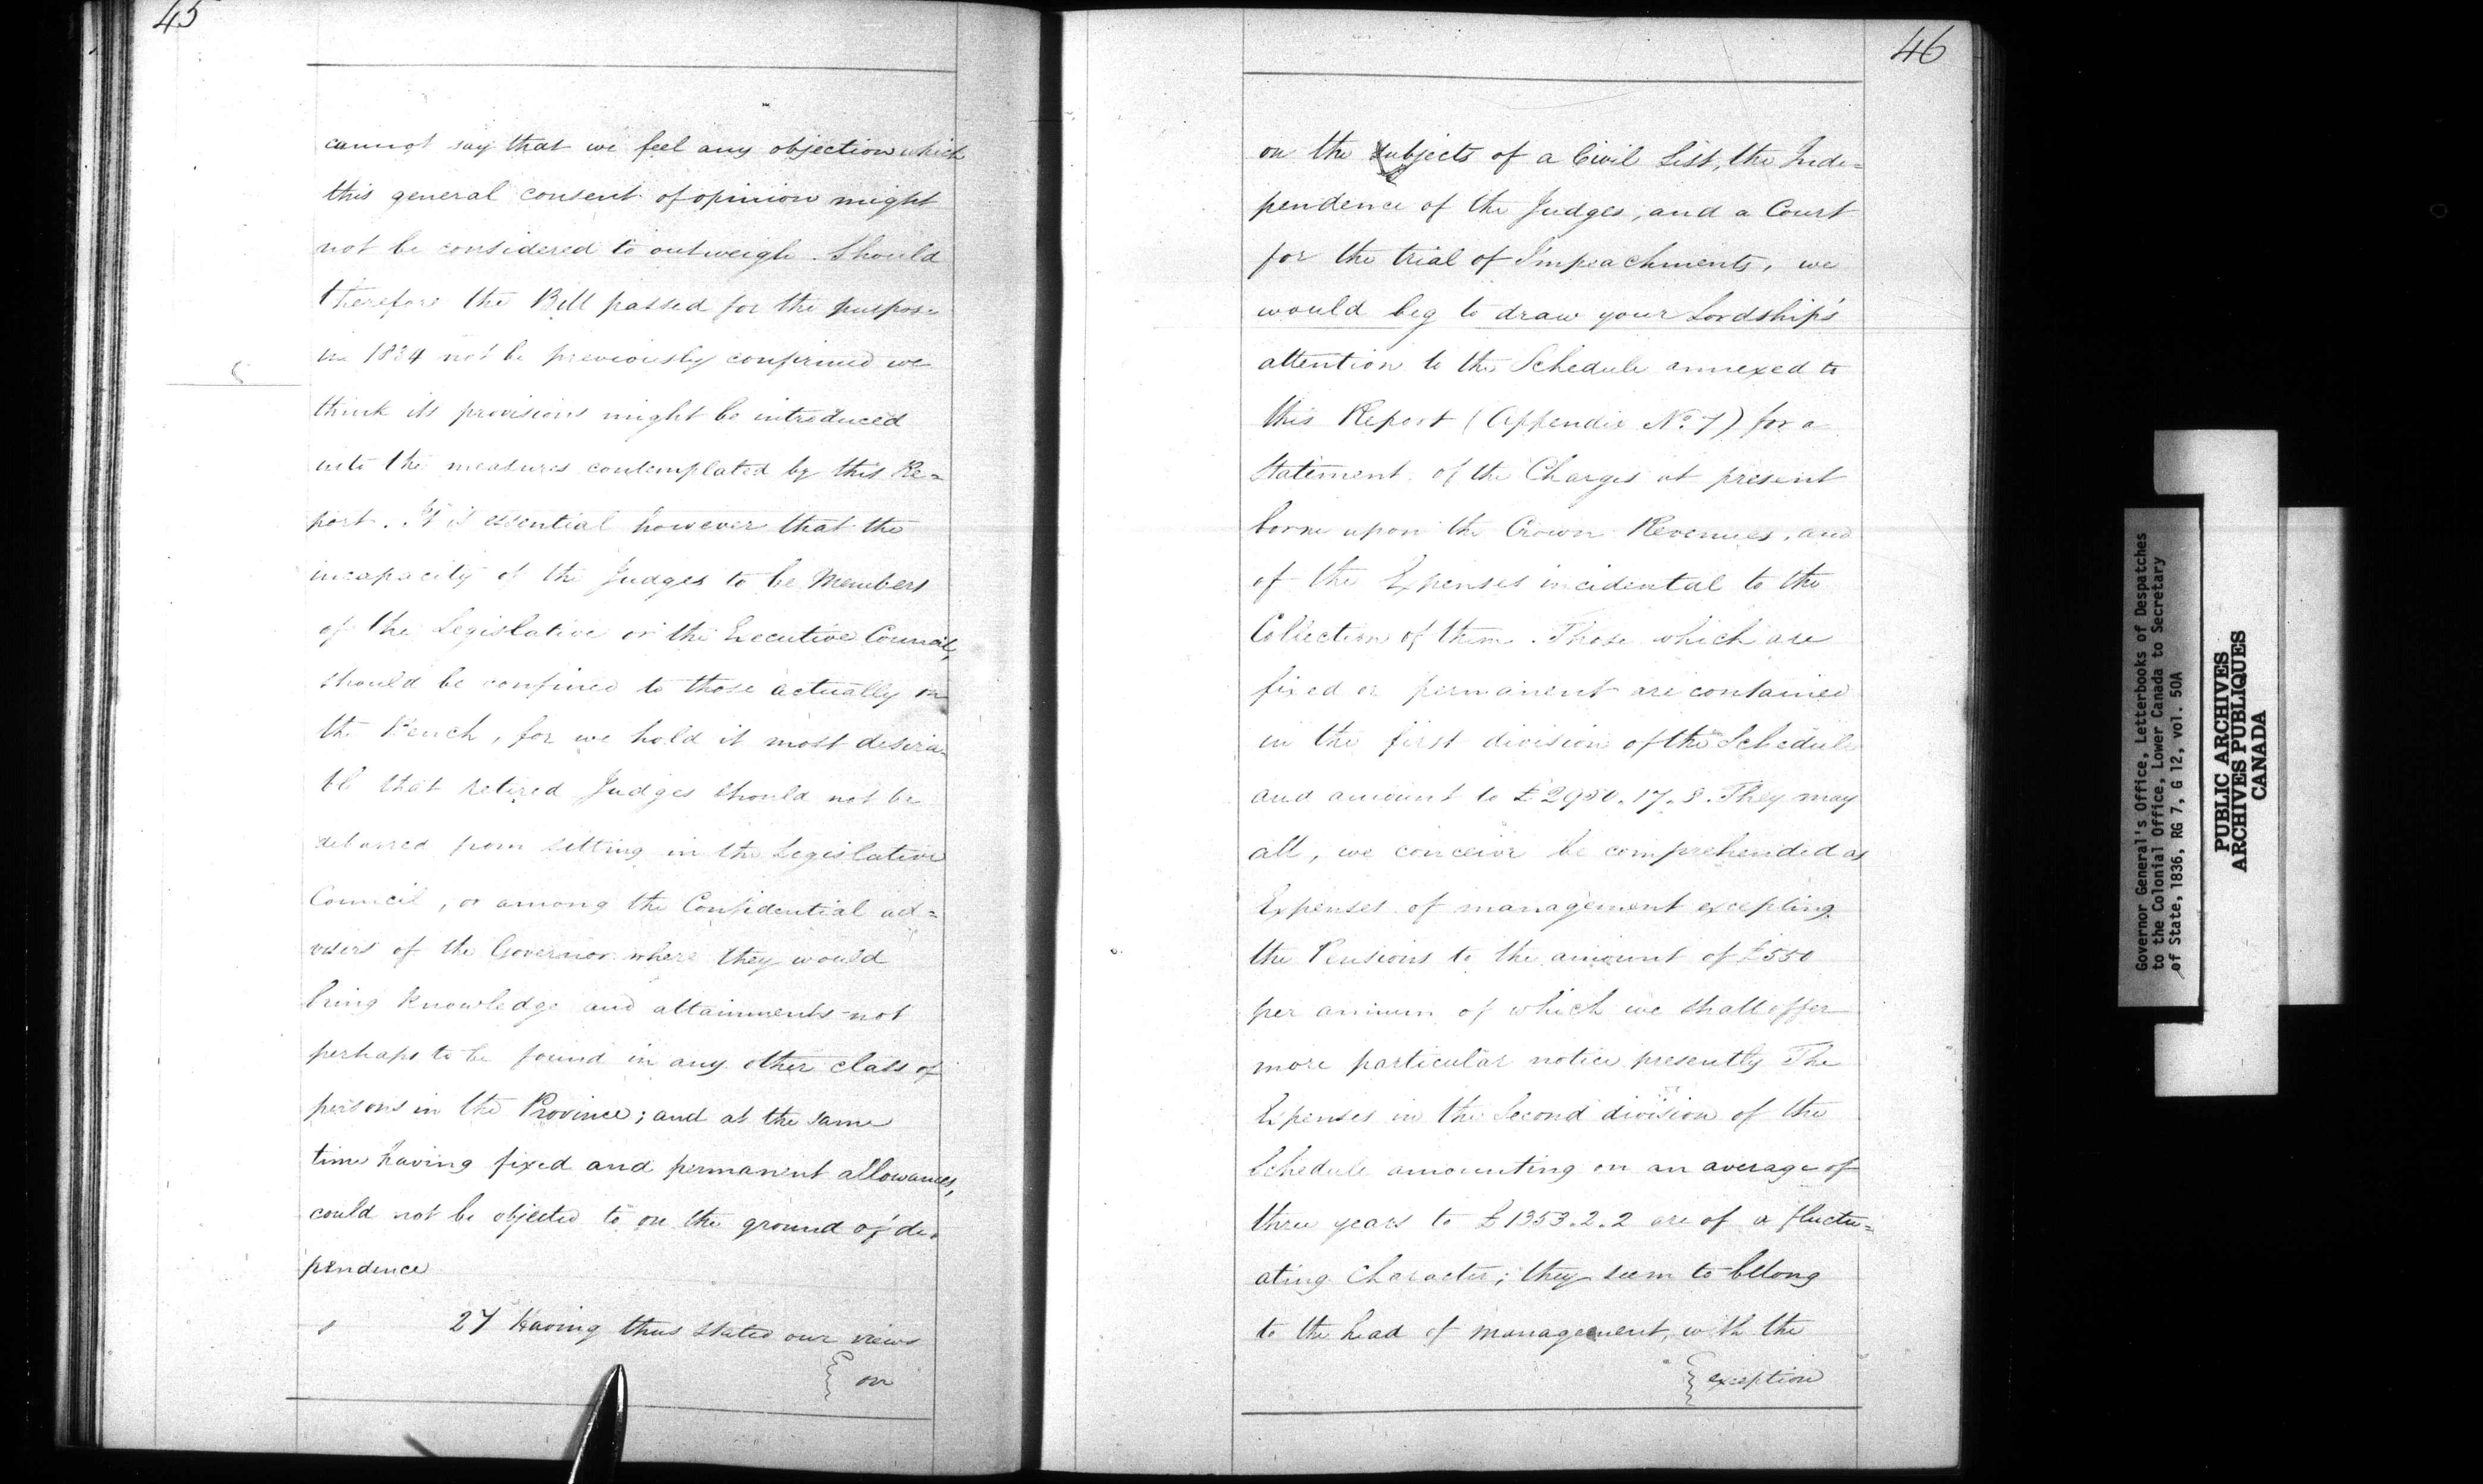 45
cannot say that we feel any objection which
this general consent of opinion might
not be considered to outweigh. Should
therefore the Bill passed for the purpose
in 1834 not be previously confirmed we
think its provisions might be introduced
into the measures contemplated by this Re=
port. It is essential however that the
incapacity of the Judges to be Members
of the Legislative or the Executive Council,
should be confined to those actually on
the Bench, for we hold it most desira=
ble that retired Judges should not be
debarred from sitting in the Legislative
Council, or among the Confidential ad=
visers of the Governor where they would
bring knowledge and attainments not
perhaps to be found in any other class of
persons in the Province; and at the same
time having fixed and permanent allowances,
could not be objected to on the ground of de=
pendence
27 Having thus stated our views
on
46
on the subjects of a Civil List, the Inde=
pendence of the Judges, and a Court
for the trial of Impeachments, we
would beg to draw your Lordship's
attention to the Schedule annexed to
this Report (Appendix No. 7) for a
Statement of the Charges at present
borne upon the Crown Revenues, and
of the Expenses incidental to the
Collection of them. Those which are
fixed or permanent are contained
in the first division of the Schedule
and amount to £2950.17.8. They may
all, we conceive be comprehended as
Expenses of management excepting
the Pensions to the amount of £550
per annum of which we shall offer
more particular notice presently The
Expenses in the Second division of the
Schedule amounting on an average of
three years to £1353.2.2 are of a fluctu=
ating Character; they seem to belong
to the head of management, with the
exception
Governor General's Office, Letterbooks of Despatches
to the Colonial Office, Lower Canada to Secretary
of State, 1836, RG 7, G 12, vol. 50A
PUBLIC ARCHIVES
ARCHIVES PUBLIQUES
CANADA